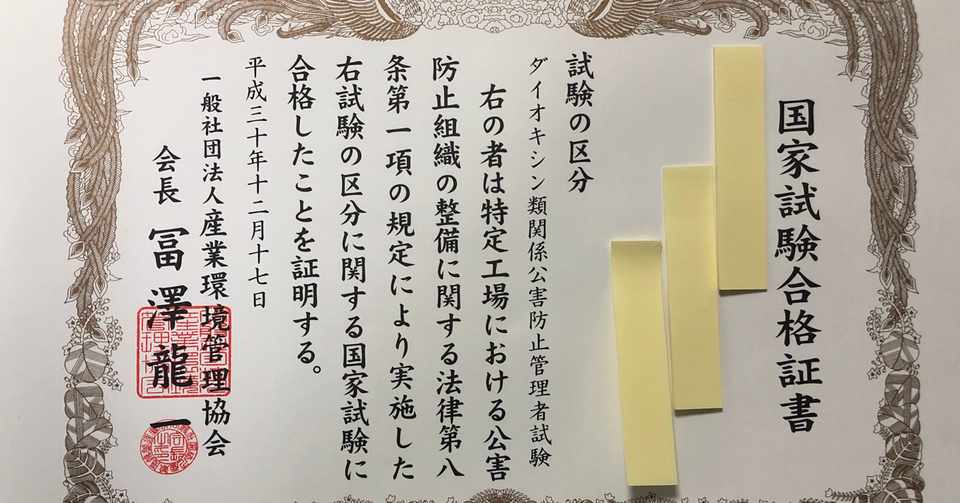 国家試験合格証書
試験の区分
ダイオキシン類関係公害防止管理者試験
右の者は特定工場における公害
防止組織の整備に関する法律第八
条第一項の規定により実施した
右試験の区分に関する国家試験に
合格したことを証明する。
平成三十年十二月十七日
一般社団法人産業環境管理協会
会長 冨澤龍一